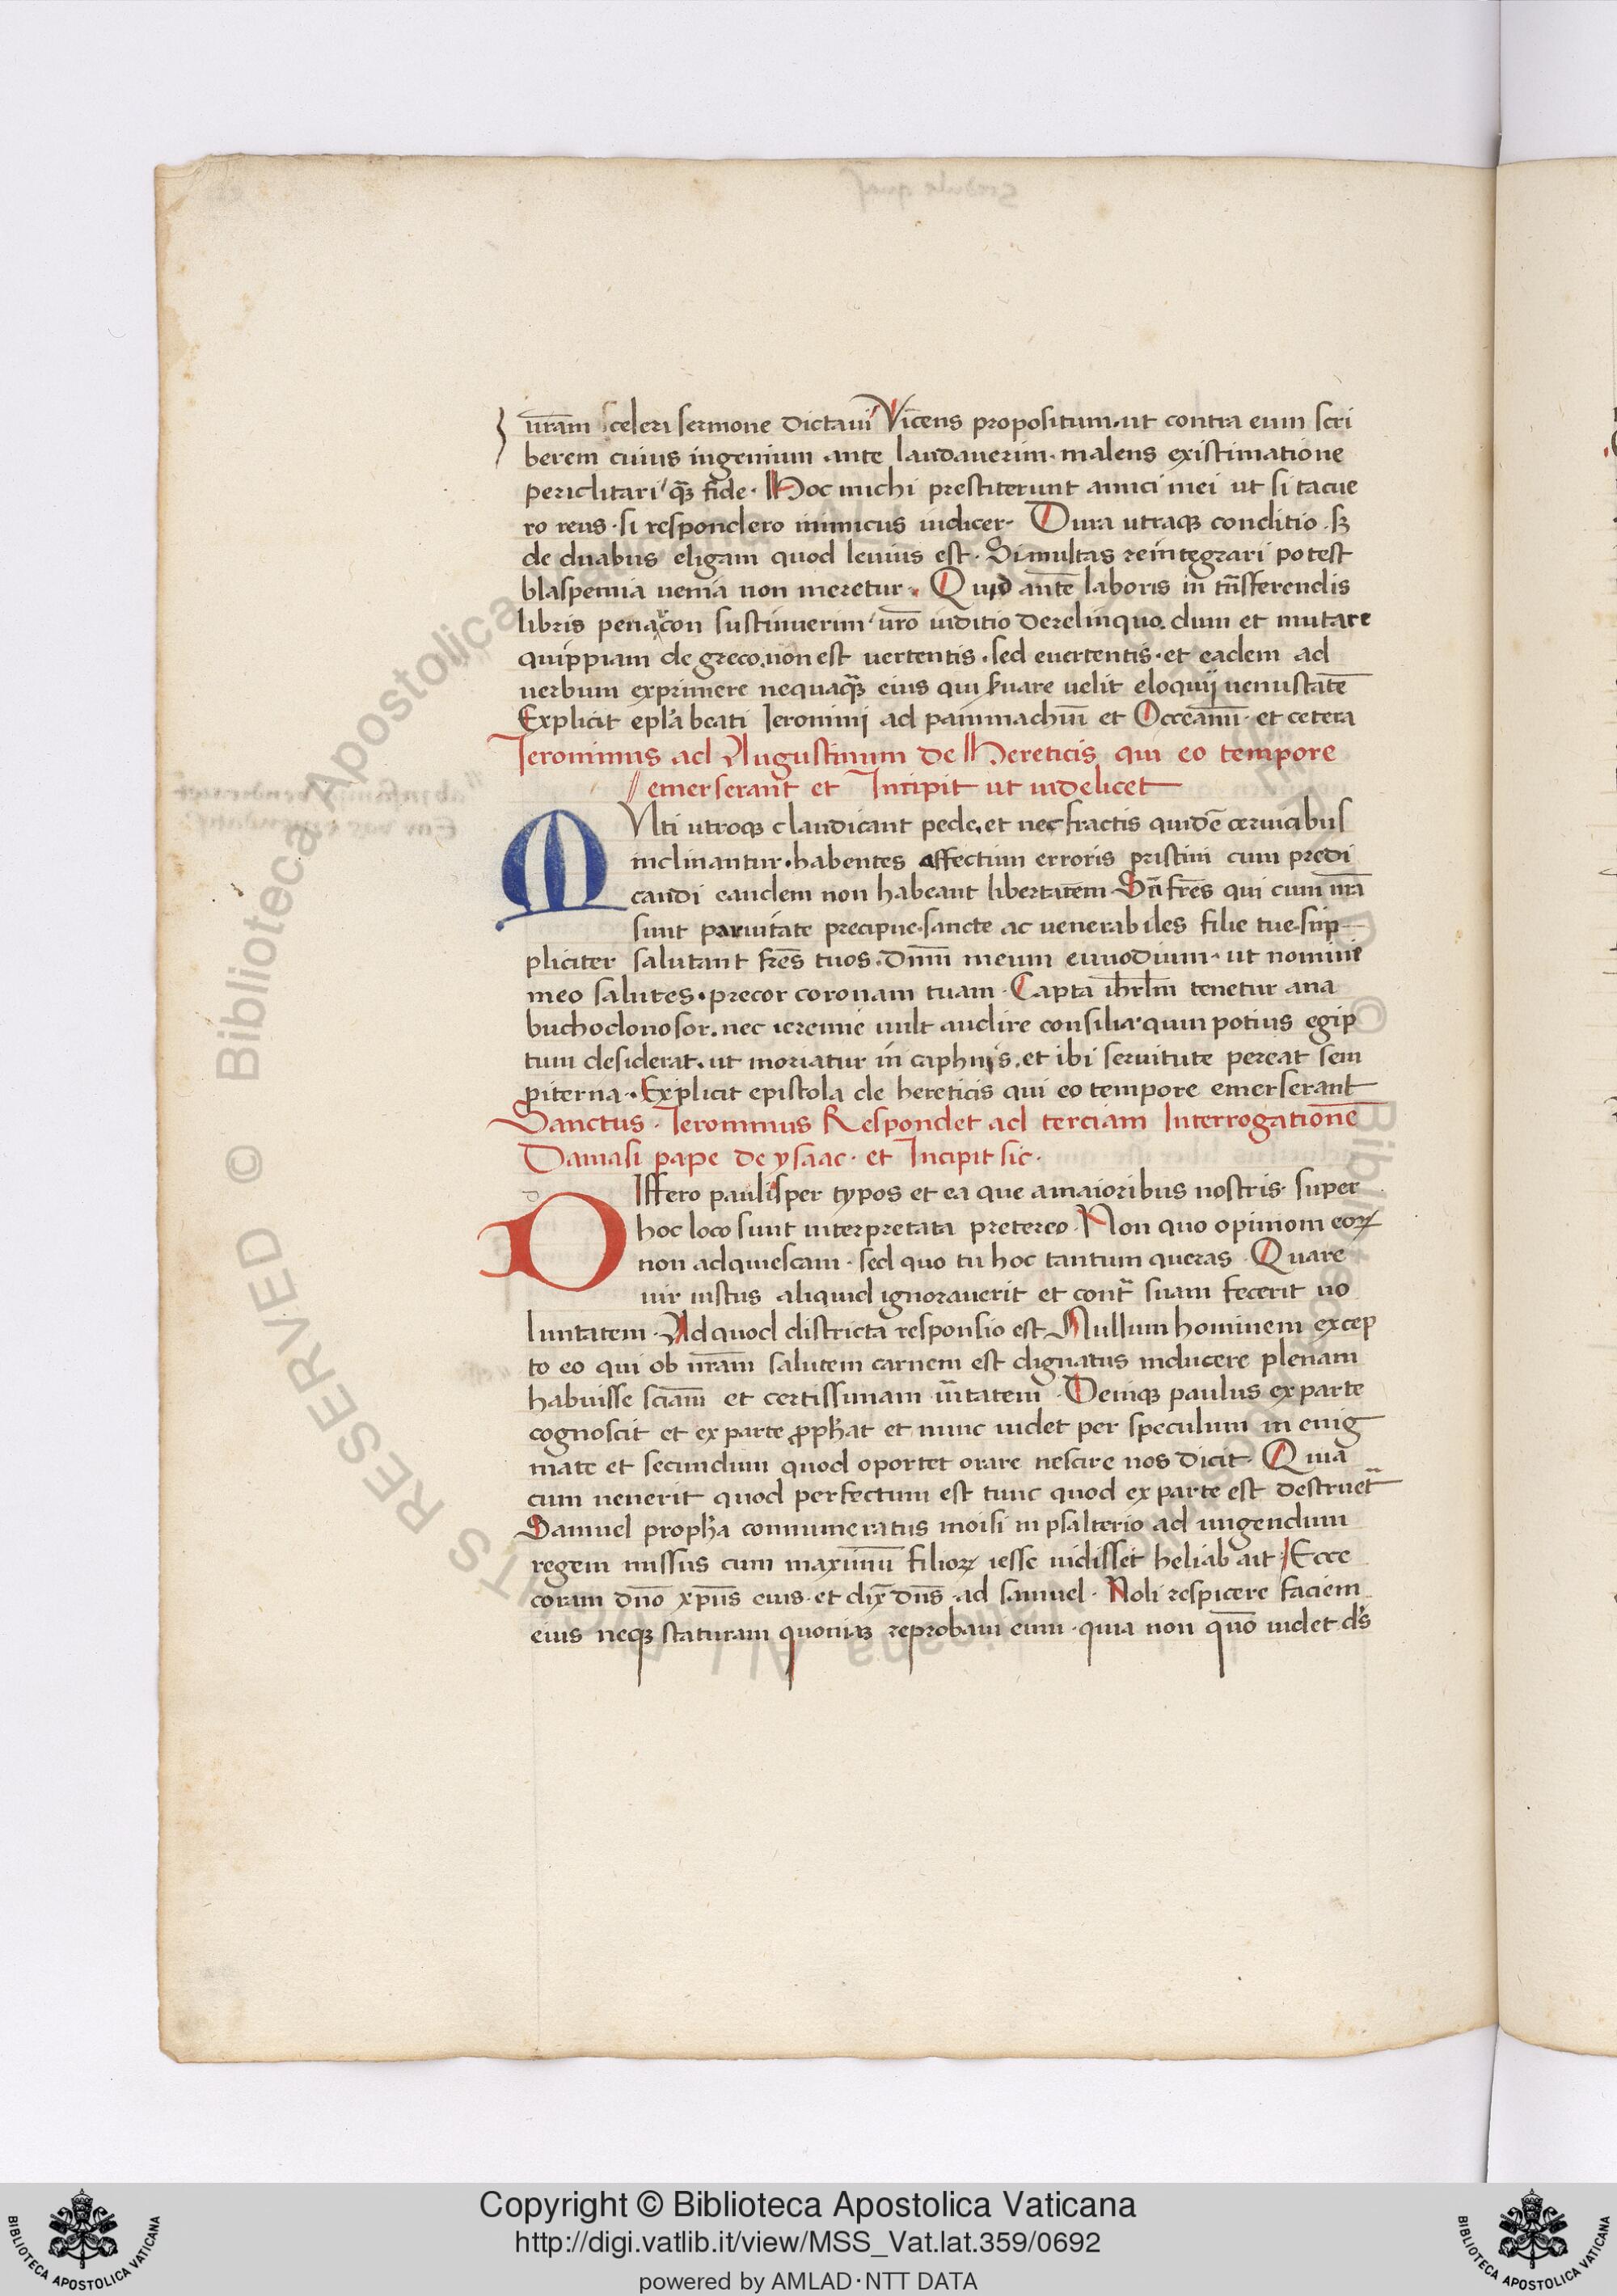 ur̄am sceleri sermone dictaui Vice̅ns propositum. ut contra eum scri
berem cuius ingenium ante laudauerim. malens existimatione
periclitari qȝ fide. Hoc michi prestiterunt amici mei ut si tacue
ro reus. si respondero inimicus iudicer. Dura utraqȝ conditio. sȝ
de duabus eligam quod leuius est. Simultas reintegrari potest
blasphemia uenia non meretur. Quid aut̄e laboris in tn̄sferendis
libris sustinuerim ur̄o iuditio derelinquo. dum et mutare
quippiam de greco. non est uertentis. sed euertentis. et eadem ad
uerbum exprimere nequaqȝ eius qui s̄uare uelit eloquij uenustate̅
Explicit epl'a beati Ieronimi ad pammachiu̅ et Occeanu̅. et cetera
Ieronimus ad Augustinum de Hereticis qui eo tempore
emerserant et Incipit ut uidelicet
MVlti utroqȝ claudicant pede. et nec fractis quide̅ ceruicibus
inclinantur. habentes affectum erroris pristini cum predi
candi eandem non habeant libertatem. Sn̄ fr̄es qui cum nr̄a
sunt paruitate precipue. sancte ac uenerabiles filie tue. sup
pliciter salutant fr̄es tuos. Dn̄m meum euuodium. ut nomine
meo salutes. precor coronam tuam. Capta ihrl̄m tenetur ana
buchodonosor. nec ieremie uult audire consilia. quin potius egip
tum desiderat. ut moriatur in caphnis. et ibi seruitute pereat sem
piterna. Explicit epistola de hereticis qui eo tempore emerserant
Sanctus. Ieronimus Respondet ad terciam Interrogatione̅
Damasi pape de ysaac. et Incipit sic.
DIffero paulisper typos et ea que a maioribus nostris. super
hoc loco sunt interpretata pretereo. Non quo opiniom eoꝝ
non adquiescam. sed quo tu hoc tantum queras. Quare
uir iustus aliquid ignorauerit et contr̄ suam fecerit uo
luntatem. Ad quod districta responsio est. Nullum hominem excep
to eo qui ob nr̄am salutem carnem est dignatus inducere plenam
habuisse scia̅m et certissimam uītatem. Deniqȝ paulus ex parte
cognoscit et ex parte ꝓph̄at et nunc uidet per speculum in enig
mate et secundum quod oportet orare nescire nos dicit. Quia
cum uenerit quod perfectum est tunc quod ex parte est destruet̄
Samuel proph̄a connumeratus moisi in psalterio ad ungendum
regem missus cum maximu̅ filioꝝ iesse uidisset heliab ait. Ecce
coram dn̄o xpūs eius. et dix̄ dn̄s ad samuel. Noli respicere faciem
eius neqȝ staturam quoniaȝ reprobaui eum. quia non quo̅ uidet ds̄
Copyright © Biblioteca Apostolica Vaticana
http://digi.vatlib.it/view/MSS_Vat.lat.359/0692
powered by AMLAD·NTT DATA